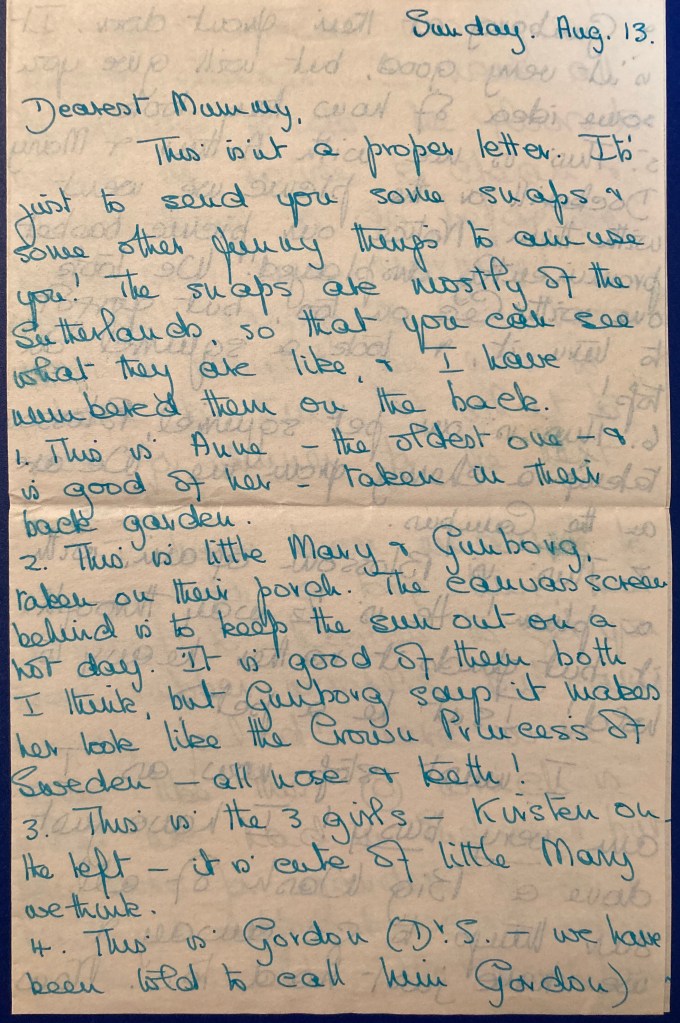 Sunday. Aug. 13.
Dearest Mummy,
This isn't a proper letter. It's
just to send you some snaps &
some other funny things to amuse
you! The snaps are mostly of the
Sutherlands, so that you can see
what they are like, & I have
numbered them on the back.
1. This is Anne – the oldest one – &
is good of her – taken in their
back garden.
2. This is little Mary & Gunborg,
taken on their porch. The canvas screen
behind is to keep the sun out on a
hot day. It is good of them both
I think, but Gunborg says it makes
her look like the Crown Princess of
Sweden – all nose & teeth!
3. This is the 3 girls – Kirsten on
the left – it is cute of little Mary
we think.
4. This is Gordon (Dr. S. – we have
been told to call him Gordon)